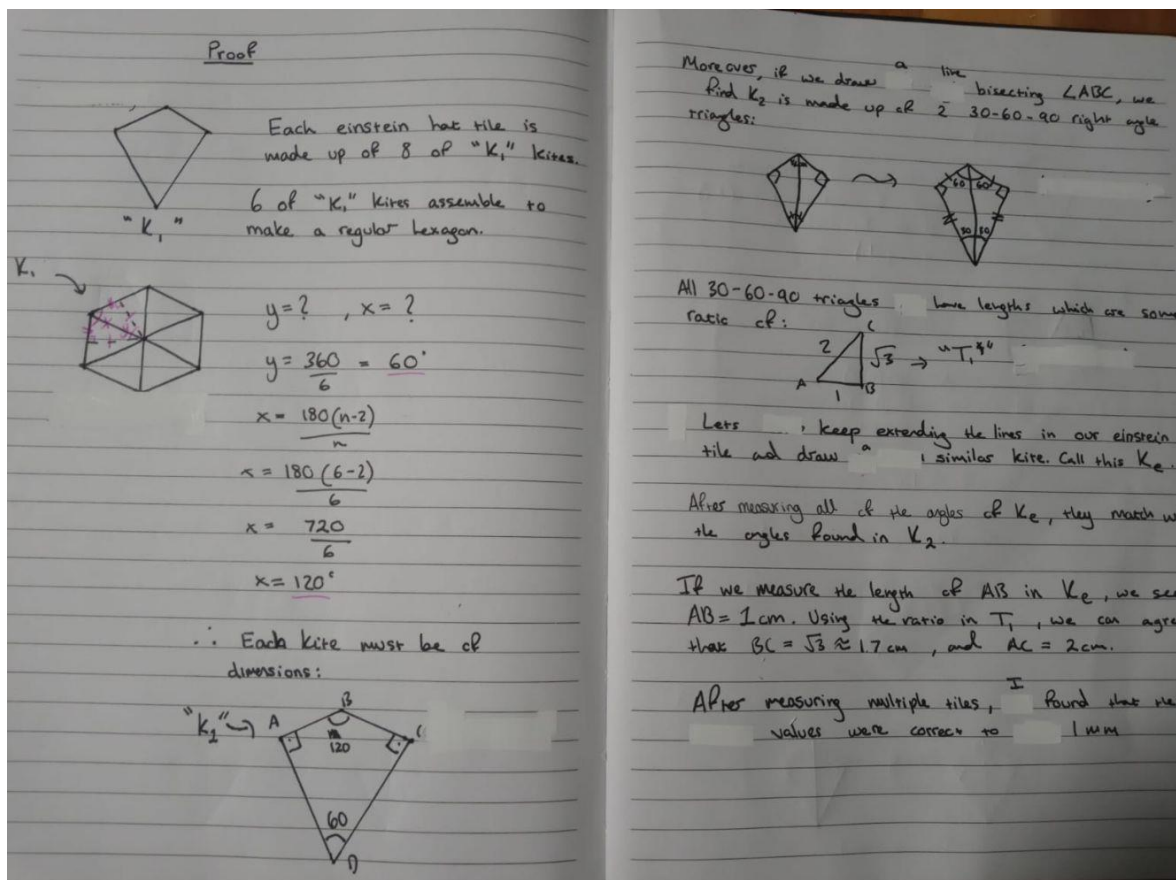 Proof
Each einstein hat tile is
made up of 8 of "K₁" kites.
"K₁"
6 of "K₁" kites assemble to
make a regular hexagon.
K₁
y = ? , x = ?
y = 360/6 = 60°
x = 180(n-2)/n
x = 180(6-2)/6
x = 720/6
x = 120°
∴ Each kite must be of
dimensions:
"K₂"
A
B
C
120
60
D
Moreover, if we draw a line bisecting ∠ABC, we
find K₂ is made up of 2 30-60-90 right angle
triangles:
60 60
30 30
All 30-60-90 triangles have lengths which are some
ratio of:
C
2 √3 → "T₁"
A B
1
Lets keep extending the lines in our einstein
tile and draw a similar kite. Call this Kₑ.
After measuring all of the angles of Kₑ, they match w
the angles found in K₂.
If we measure the length of AB in Kₑ, we see
AB = 1cm. Using the ratio in T₁, we can agre
that BC = √3 ≈ 1.7cm, and AC = 2cm.
After measuring multiple tiles, I found that the
values were correct to 1mm